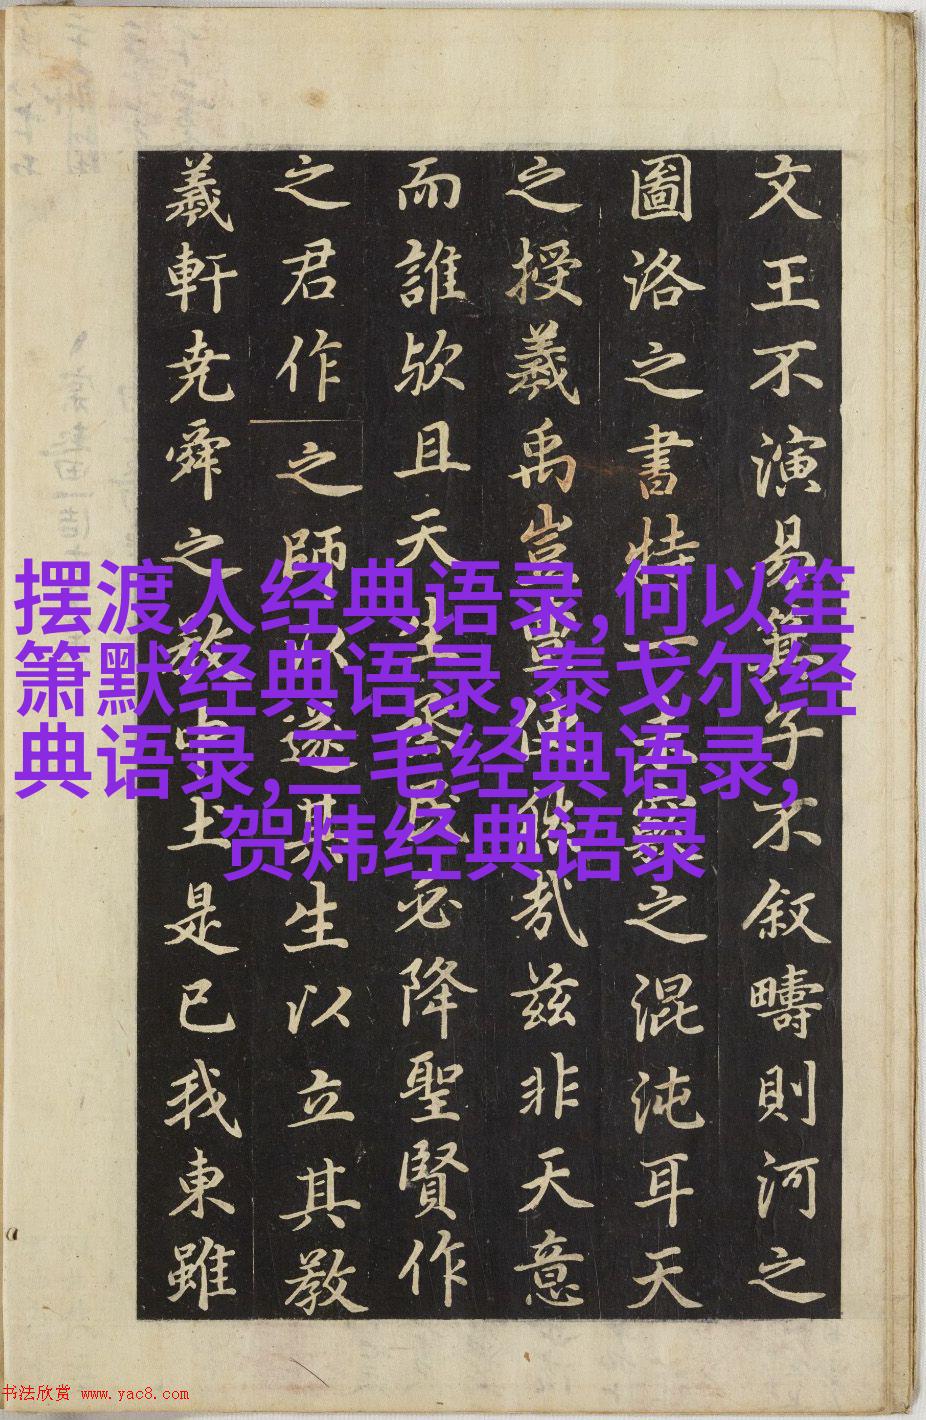 文王不演易箕子不叙疇則河之
圖洛之書特一之混沌耳天
之授羲禹豈偶然哉兹非天意
而誰歟且天生烝民必降聖賢作
之君作之師以遂其生以立其教
羲軒尭舜之教中土是已我東雖
摆渡人经典语录,何以笙
箫默经典语录,泰戈尔经
典语录,三毛经典语录,
贺炜经典语录
书法欣赏 www.yac8.com